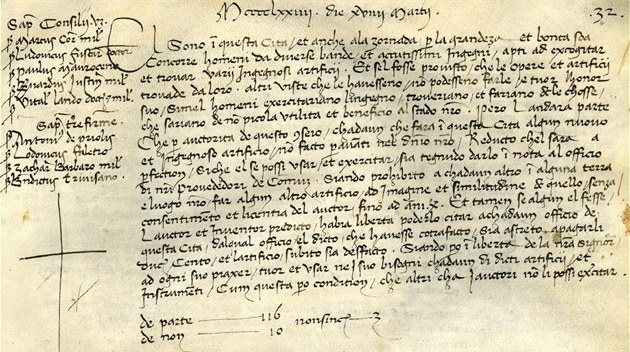 Mcccclxxiiij. die xviiij Martij. 32.
Sap. Consilij
ṕ Marcus Cor mil
ṕ Ludovicus Fuscar doctor
ṕ Paulus Mauroceno
ṕ Bnardus Justin mil
ṕ Vital Lando doct mil
Sap. tre firme.
ṕ Antoni de priolis
ṕ Lodovicus Faletro
ṕ Zachar Barbaro mil
ṕ Bndictus Trivisano.
El Sono ī questa Cita, et anche ala zornada p la grandeza et bonta soa
Concorre homeni da diverse bande, et acutissimi Ingegni, apti ad excogitar
et trovar varij Ingegnosi artificij. Et sel fosse provisto, che le Opere et artificij
trovade da loro, altri viste che le havesseno, nō podesseno farle, e tuor lhonor
suo, Simel homeni exercitariano lingegno, troveriano, et fariano de le chosse,
che sariano de nō picola utilita et beneficio al stado nr̄o. Pero Landara parte
che p auctorita de questo 9seio, chadaun che fara ī questa Cita algun nuovo
et Ingegnoso artificio, nō facto p avanti nel dnio nr̄o, Reducto chel sara a
pfection, Siche el se possi usar, et exercitar, sia tegnudo darlo ī nota al officio
di nr̄i Provededori de Comun. Siando prohibito a chadaun altro ī alguna terra
e luogo nr̄o, far algun altro artificio, ad Imagine et similitudine de quello, senza
consentimento et licentia del auctor, fino ad ani .x. Et tamen se algun el fesse,
Lauctor et Inventor predicto, habia liberta poderlo citar a chadaun officio de
questa Cita, dal qual officio el dicto che havesse cōtrafacto, sia astreto, a pagarli
duc Cento, et lartificio, subito sia desfacto. Siando po ī liberta de la nr̄a Signoria
ad ogni suo piaxer, tuor et usar ne i suo bisogni chadaun di dicti artificij, et
Instrumenti, Cum questa po condition, che altri cha i auctori nō li possi exercitar.
de parte 116
de non 10
nonsinc 3